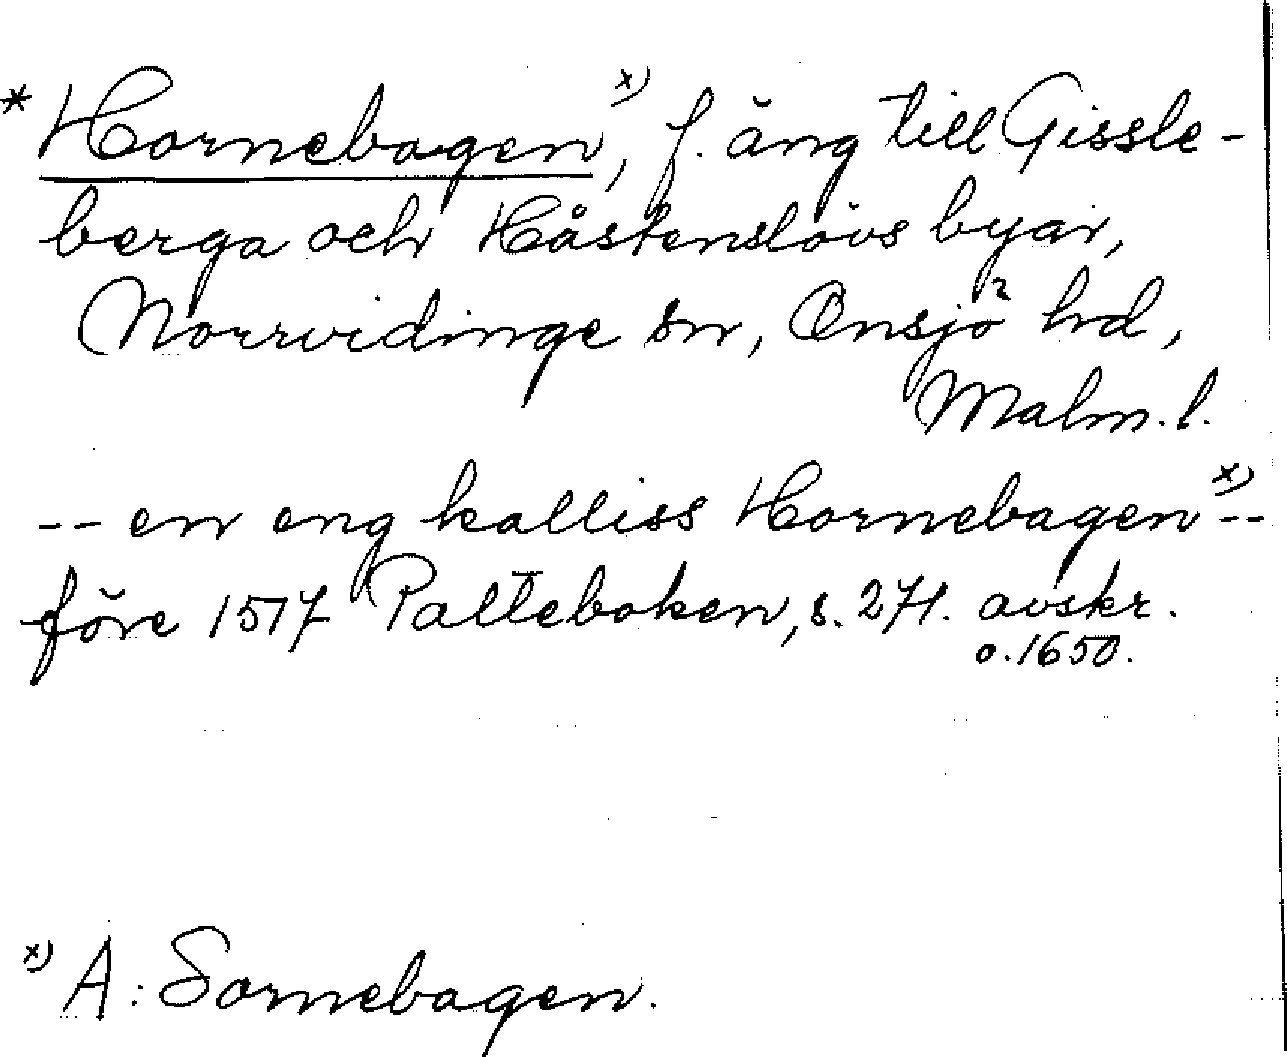 * Hornebagen x), f. äng till Gissle-
berga och Håstenslövs byar,
Norrvidinge sn, Onsjö hd,
Malm. l.
-- en eng kalliss Hornebagen x) --
före 1517 Palteboken, s. 271. avskr.
o. 1650.
x) A: Sornebagen.